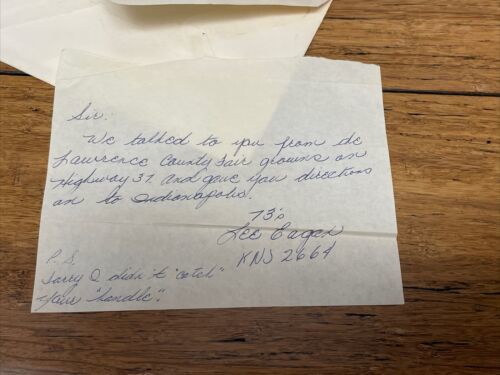 Sir:
We talked to you from the
Lawrence County fair grouns on
Highway 37 and gave you directions
on to Indianapolis.
73's
Lee Eagan
KNS 2664
P.S.
Sorry I didn't "catch"
your "handle".